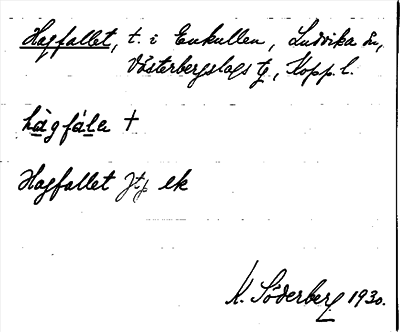 Hagfallet, t. i Enkullen, Ludvika sn,
Västerbergslags tg, Kopp. l.
hàgfá̀la +
Hagfallet Jtp ek
K. Söderberg 1930.